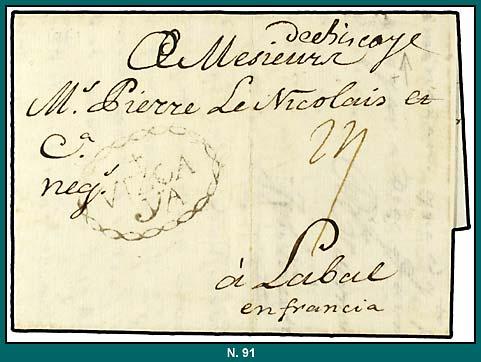 debiscaye
A Mesieurs
Ms. Pierre Le Nicolais et
Ca.
negs.
VIZCA
YA
à Labal
en francia
N. 91